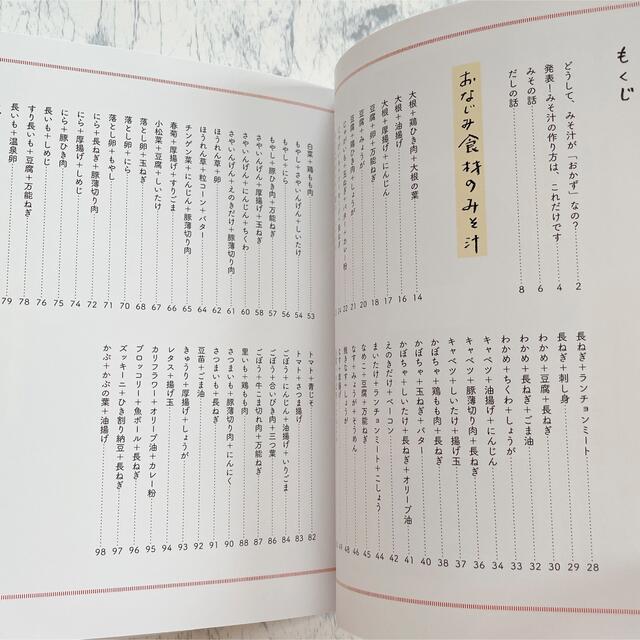 もくじ
どうして、みそ汁が「おかず」なの？……2
発表！みそ汁の作り方は、これだけです……4
みその話……6
だしの話……8
おなじみ食材のみそ汁
大根＋鶏ひき肉＋大根の葉……14
大根＋油揚げ……16
大根＋厚揚げ＋にんじん……17
豆腐＋卵＋万能ねぎ……18
豆腐＋みょうが……20
豆腐＋鶏ひき肉＋しょうが……21
長ねぎ＋ランチョンミート……28
長ねぎ＋刺し身……29
わかめ＋豆腐＋長ねぎ……30
わかめ＋長ねぎ＋ごま油……32
わかめ＋ちくわ＋しょうが……33
キャベツ＋油揚げ＋にんじん……34
キャベツ＋豚薄切り肉＋長ねぎ……36
キャベツ＋しいたけ＋揚げ玉……37
かぼちゃ＋鶏もも肉＋長ねぎ……38
かぼちゃ＋玉ねぎ＋バター……40
かぼちゃ＋しいたけ＋長ねぎ＋オリーブ油……41
えのきだけ＋ベーコン……42
まいたけ＋ランチョンミート＋こしょう……44
なめこ＋豆腐＋万能ねぎ……45
なす＋みょうが＋そうめん……46
焼きなす＋しょうが……48
白菜＋鶏もも肉……53
もやし＋さやいんげん＋しいたけ……54
もやし＋にら……56
もやし＋豚ひき肉＋万能ねぎ……57
さやいんげん＋厚揚げ＋玉ねぎ……58
さやいんげん＋にんじん＋ちくわ……60
さやいんげん＋えのきだけ＋豚薄切り肉……61
ほうれん草＋卵……62
ほうれん草＋粒コーン＋バター……64
チンゲン菜＋にんじん＋豚薄切り肉……65
春菊＋厚揚げ＋すりごま……66
小松菜＋豆腐＋しいたけ……67
落とし卵＋玉ねぎ……68
落とし卵＋にら……70
落とし卵＋もやし……71
にら＋長ねぎ＋豚薄切り肉……72
にら＋厚揚げ＋しめじ……74
にら＋豚ひき肉……75
長いも＋しめじ……76
すり長いも＋豆腐＋万能ねぎ……78
長いも＋温泉卵……79
トマト＋青じそ……82
トマト＋さつま揚げ……83
ごぼう＋にんじん＋油揚げ＋いりごま……84
ごぼう＋合いびき肉＋三つ葉……86
ごぼう＋牛こま切れ肉＋万能ねぎ……87
里いも＋鶏もも肉……88
さつまいも＋豚薄切り肉＋にんにく……90
さつまいも＋長ねぎ……91
豆苗＋ごま油……92
きゅうり＋厚揚げ＋しょうが……93
レタス＋揚げ玉……94
カリフラワー＋オリーブ油＋カレー粉……95
ブロッコリー＋魚ボール＋長ねぎ……96
ズッキーニ＋ひき割り納豆＋長ねぎ……97
かぶ＋かぶの葉＋油揚げ……98